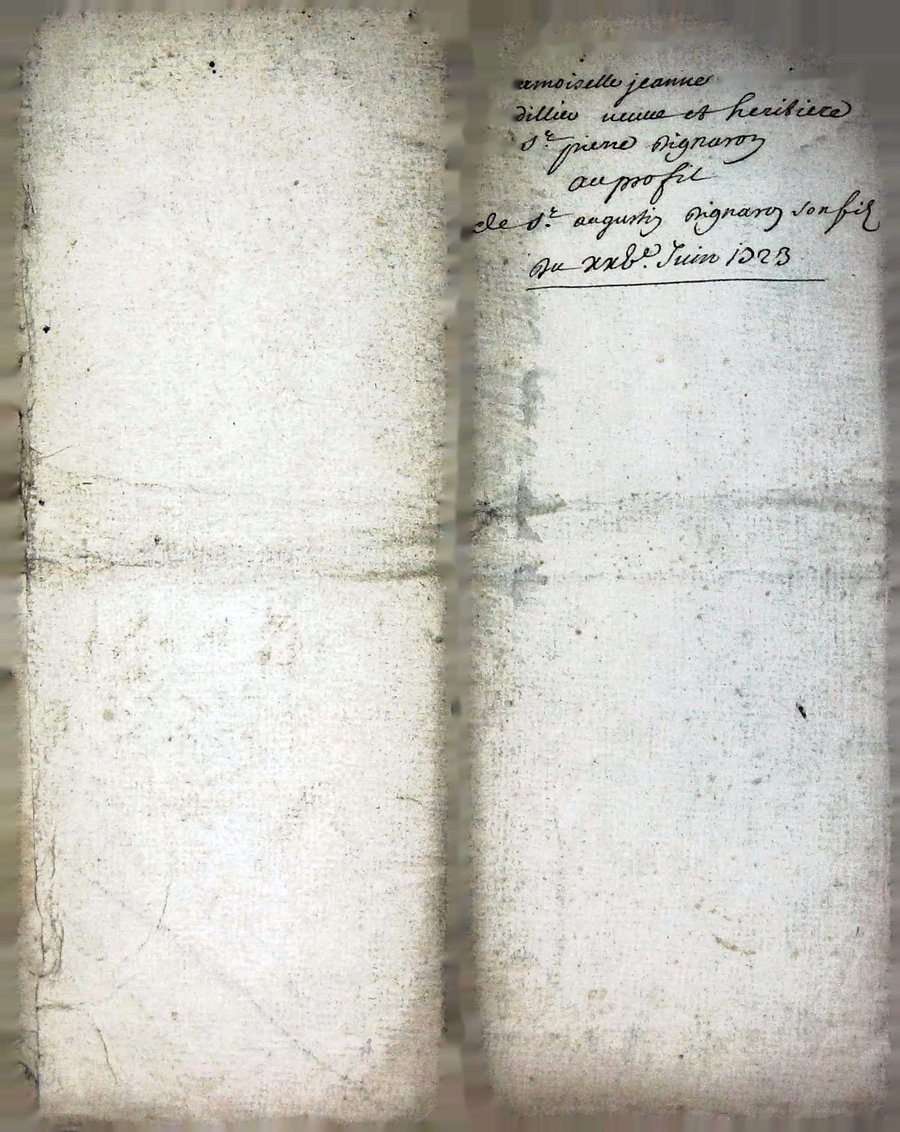 amoiselle jeanne
dillieu veuve et heritiere
Sr pierre Vignaron
au profit
de Sr. augustin Vignaron son fils
Du xxve. Juin 1723